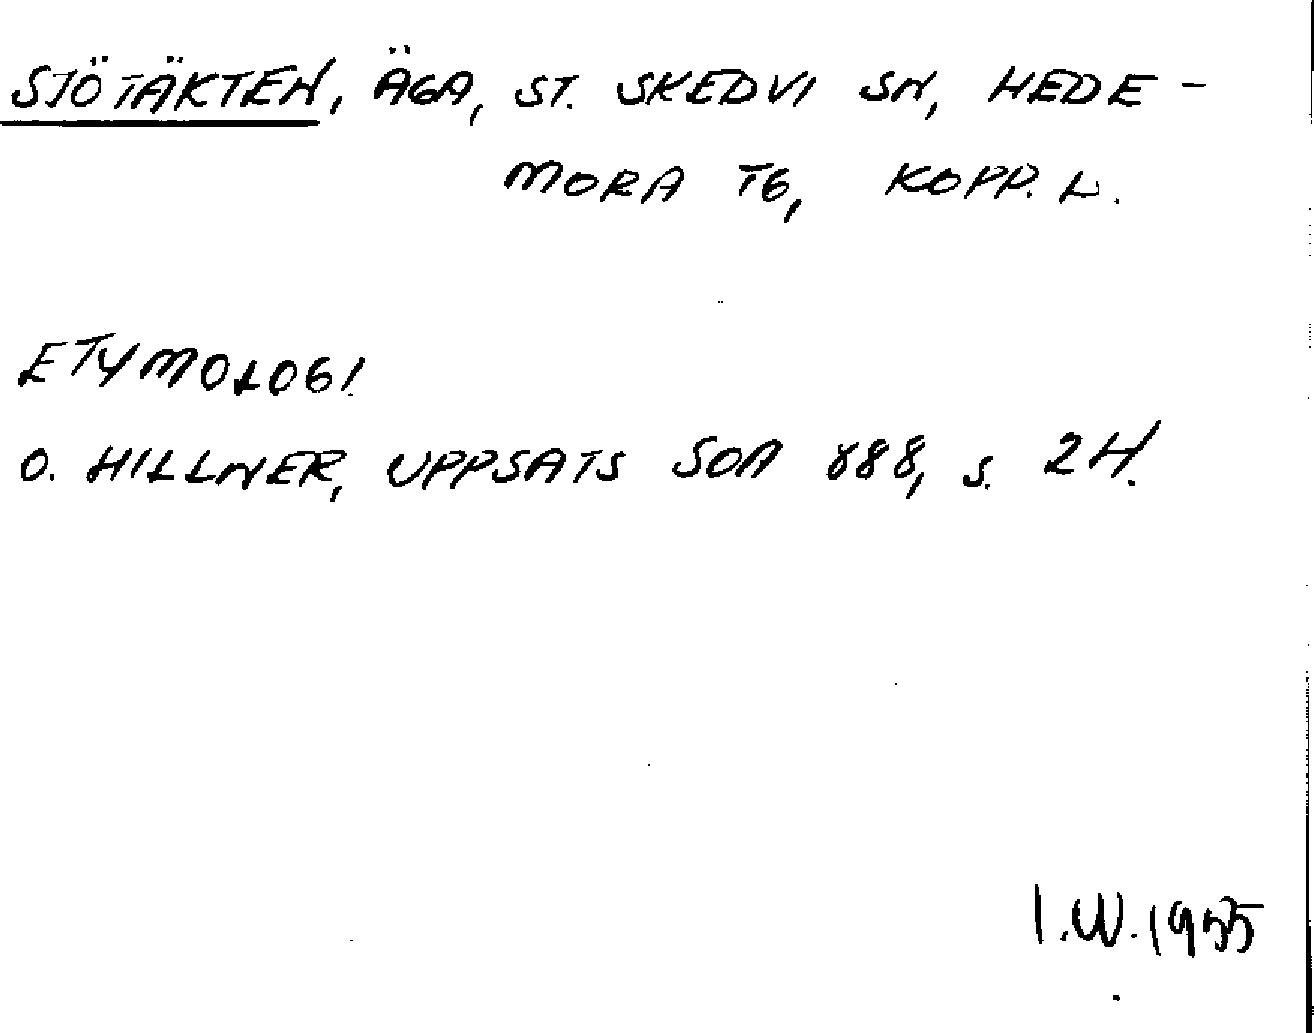 SJÖTÄKTEN, ÄGA, ST. SKEDVI SN, HEDE-
MORA TG, KOPP. L.
ETYMOLOGI
O. HILLNER, UPPSATS SOA 888, s. 24.
I.W. 1955